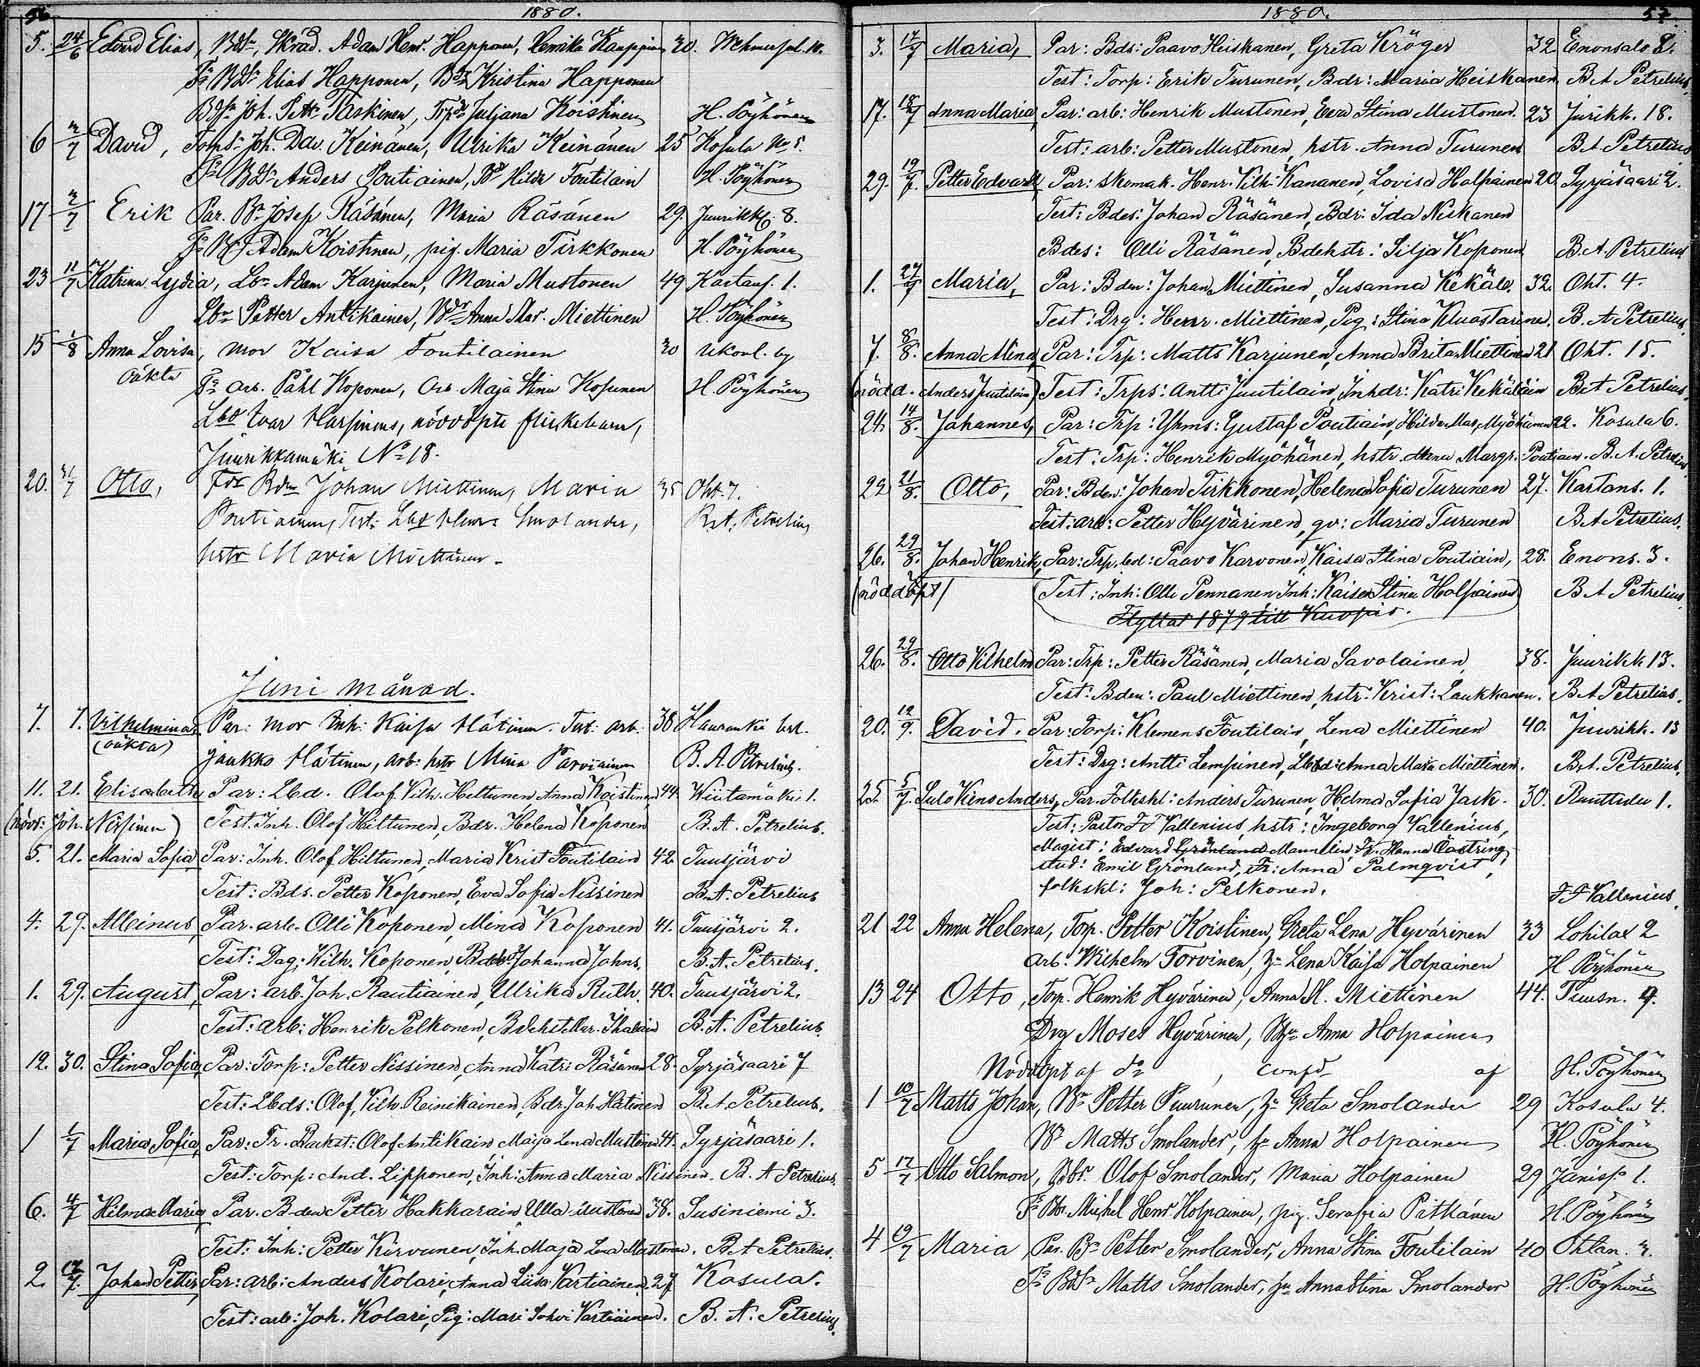 56 1880.
5. 24/6 Edvard Elias, Bdsn, Skräd. Adam Henr. Happonen, Henrika Kauppinen 30. Mehmasjal. 10.
Fr Bdsn Elias Happonen, Bdr Kristina Happonen
Bdsn Joh. Pett. Taskinen, Juljana Koistinen H. Pöyhönen
6 2/7 David, Torps. Joh. Dav. Keinänen, Ulrika Keinänen 25 Kosula No 5.
Anders Poutiainen, Hilda Toutilain H. Pöyhönen
17 2/7 Erik Par. Bn Josef Räsänen, Maria Räsänen 29. Juurikk. 8.
Adam Koistinen, pig. Maria Tirkkonen H. Pöyhönen
23 11/7 Katrina Lydia, Lbn Adam Karjunen, Maria Mustonen 49 Kaitans. 1.
Lbn Petter Antikainen, Anna Mar. Miettinen H. Pöyhönen
15 1/8 Anna Lovisa, mor Kaisa Toutilainen 30 Ukonl. by
oäkta Fr arb. Pähl Koponen, Arb. Maja Stina Kosunen H. Pöyhönen
Ivar Harsinius, nöddöpte flickebarn,
Juurikkamäki No 18.
20. 31/7 Otto, Fdr Bdn Johan Miettinen, Maria 35 Oht. 7.
Poutiainen, Test: Smolander, B. A. Petrelius
hstr Maria Miettinen.
Juni månad.
7. 7. Vilhelmina, Par: mor Inh: Kaisa Hätinen. Test: arb. 38 Hauranki
(oäkta) Jaakko Hätinen, arb: hstr Mina Parviainen B. A. Petrelius.
11. 21. Elisabeth, Par: Lbd. Olof Vilh. Hiltunen Anna Koistinen 44. Viitamäki 1.
(nödd: Joh. Nissinen) Test. Inh. Olof Hiltunen, Bdr. Helena Koponen B. A. Petrelius.
5. 21. Maria Sofia, Par: Inh. Olof Hiltunen, Maria Krist Toutilain 42. Tuusjärvi
Test: Bds. Petter Koponen, Eva Sofia Nissinen B. A. Petrelius
4. 29. Albinus, Par. arb. Olli Koponen, Mina Koponen 41. Tuusjärvi 2.
Test: Dag: Wilh. Koponen, Johanna Johns. B. A. Petrelius.
1. 29. August, Par: arb. Joh. Rautiainen, Ulrika Ruth. 40. Tuusjärvi 2.
Test: arb: Henrik Pelkonen, Bdehst. Mar. B. A. Petrelius.
12. 30. Stina Sofia, Par: Torp: Petter Nissinen, Anna Katr: Räsänen 28. Syrjäsaari 7
Test: Lbds: Olof Vilh. Reinikainen, Bdr. Joh. Hätinen B. A. Petrelius.
1 1/7 Maria Sofia, Par: Tr. Backst: Olof Antikain Maija Lena Mustonen 41. Syrjäsaari 1.
Test: Torp: And. Lipponen, Inh: Anna Maria Nissinen. B. A Petrelius
6. 4/7 Hilma Maria Par. B. den Petter Hakkarain Ulla Mustonen 38. Susiniemi 3.
Test: Inh: Petter Kirvunen, Inh. Maja Lena Mustonen. B. A Petrelius.
2. 12/7. Johan Petter, Par: arb: Anders Kolari, Anna Liisa Vartiainen 27 Kosula.
Test: arb: Joh. Kolari, Pig: Mari Sohvi Vartiainen. B. A. Petrelius.
1880. 57.
3. 17/7 Maria, Par: Bds: Paavo Heiskanen, Greta Kröger 32 Enonsalo 8.
Test: Torp: Erik Turunen, Bdr: Maria Heiskanen B. A Petrelius.
17. 18/7 Anna Maria, Par: arb: Henrik Mustonen, Eva Stina Mustonen. 23 Jurikk. 18.
Test: arb: Petter Mustonen, hstr. Anna Turunen B. A. Petrelius.
29. 19/7. Petter Edvard, Par: skomak. Henr. Vilh. Kananen Lovisa Holpainen 20. Syrjäsaari 2.
Test: Bdes: Johan Räsänen, Bdr: Ida Niskanen
Bdes: Olli Räsänen, Bdehstr: Silja Koponen B. A. Petrelius
1. 27/7 Maria, Par: Bden: Johan Miettinen, Susanna Kekäle, 32. Oht. 4.
Test: Drg: Henr. Miettinen, Pig: Stina Kluastarine. B. A. Petrelius.
7. 8/8. Anna Mina, Par: Trp: Matts Karjunen, Anna Brita Miettinen 21 Oht. 15.
(nödd d. Anders Juutilain) Test: Trps: Antti Juutilain, Inhdr: Katri Kekäläin B. A Petrelius.
24. 14/8. Johannes, Par: Trp: Yhms: Gustaf Poutiain, Hilda Mar. Myöhänen 22. Kosula 6.
Test: Trp: Henrik Myöhänen, hstr. Anna Margr. Poutiain. B. A. Petrelius
22 21/8. Otto, Par: Bden: Johan Tirkkonen, Helena Sofia Turunen 27. Kartans. 1.
Test: arb: Petter Hyvärinen, qv: Maria Turunen B. A Petrelius.
26. 29/8. Johan Henrik, Par: Trp. led: Paavo Karvonen, Kaisa Stina Poutiain, 28. Enons. 3.
(nöd döpt) (Test: Inh: Olli Pennanen Inh: Kaisa Stina Holpainen) B. A Petrelius.
Flyttat 1879 till Kuopio.
26. 29/8. Otto Vilhelm Par: Trp: Petter Räsänen, Maria Savolainen 38. Juurikk 13.
Test: Bden: Paul Miettinen, hstr. Krist: Laukkanen. B. A Petrelius.
20. 12/9. David. Par: Torp: Klemens Toutilain, Lena Miettinen 40. Juurikk. 13
Test: Drg: Antti Lempinen, Lbd: Anna Maria Miettinen. B. A. Petrelius.
25. 5/7 Sulo Vieno Anders, Par. Folkskl: Anders Turunen, Helma Sofia Jask. 30. Ruuttula 1.
Test: Pastor F F Vallenius, hstr: Ingeborg Vallenius,
Magist: Edvard Grönlund Mannelin, Fr. Hanna Castring,
stud: Emil Grönlund, Fr: Anna Palmqvist,
folkskl: Joh: Pelkonen. F F Vallenius.
21 22 Anna Helena, Torp. Petter Koistinen, Greta Lena Hyvärinen 33 Lohilax 2
arb: Wilhelm Torvinen, Lena Kaisa Holpainen H Pöyhönen
13 24 Otto, Torp. Henrik Hyvärinen, Anna M. Miettinen 44. Tuusn. 9.
Drg Moses Hyvärinen, Anna Holpainen
Nöddöpt af Dr , confd af H. Pöyhönen
1 10/7 Matts Johan, Petter Puurunen, Greta Smolander 29 Kosula 4.
Matts Smolander, Anna Holpainen H. Pöyhönen
5 17/7 Otto Salmon, Bbr. Olof Smolander, Maria Holpainen 29 Jäniss. 1.
Michel Henr Holpainen, pig. Serafia Pitkänen H. Pöyhönen
4 19/7 Maria Par. Petter Smolander, Anna Stina Toutilain 40 Ohtan. 2.
Matts Smolander, Anna Stina Smolander H. Pöyhönen